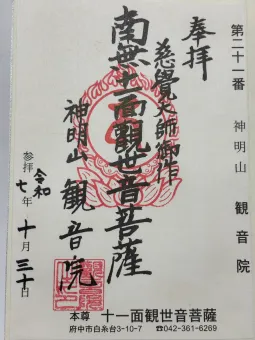 第二十一番 神明山 観音院
奉拝
慈覺大師御作
南無十一面觀世音菩薩
神明山 観音院
参拝
令和七年十月三十日
本尊 十一面観世音菩薩
府中市白糸台3-10-7 ☎042-361-6269